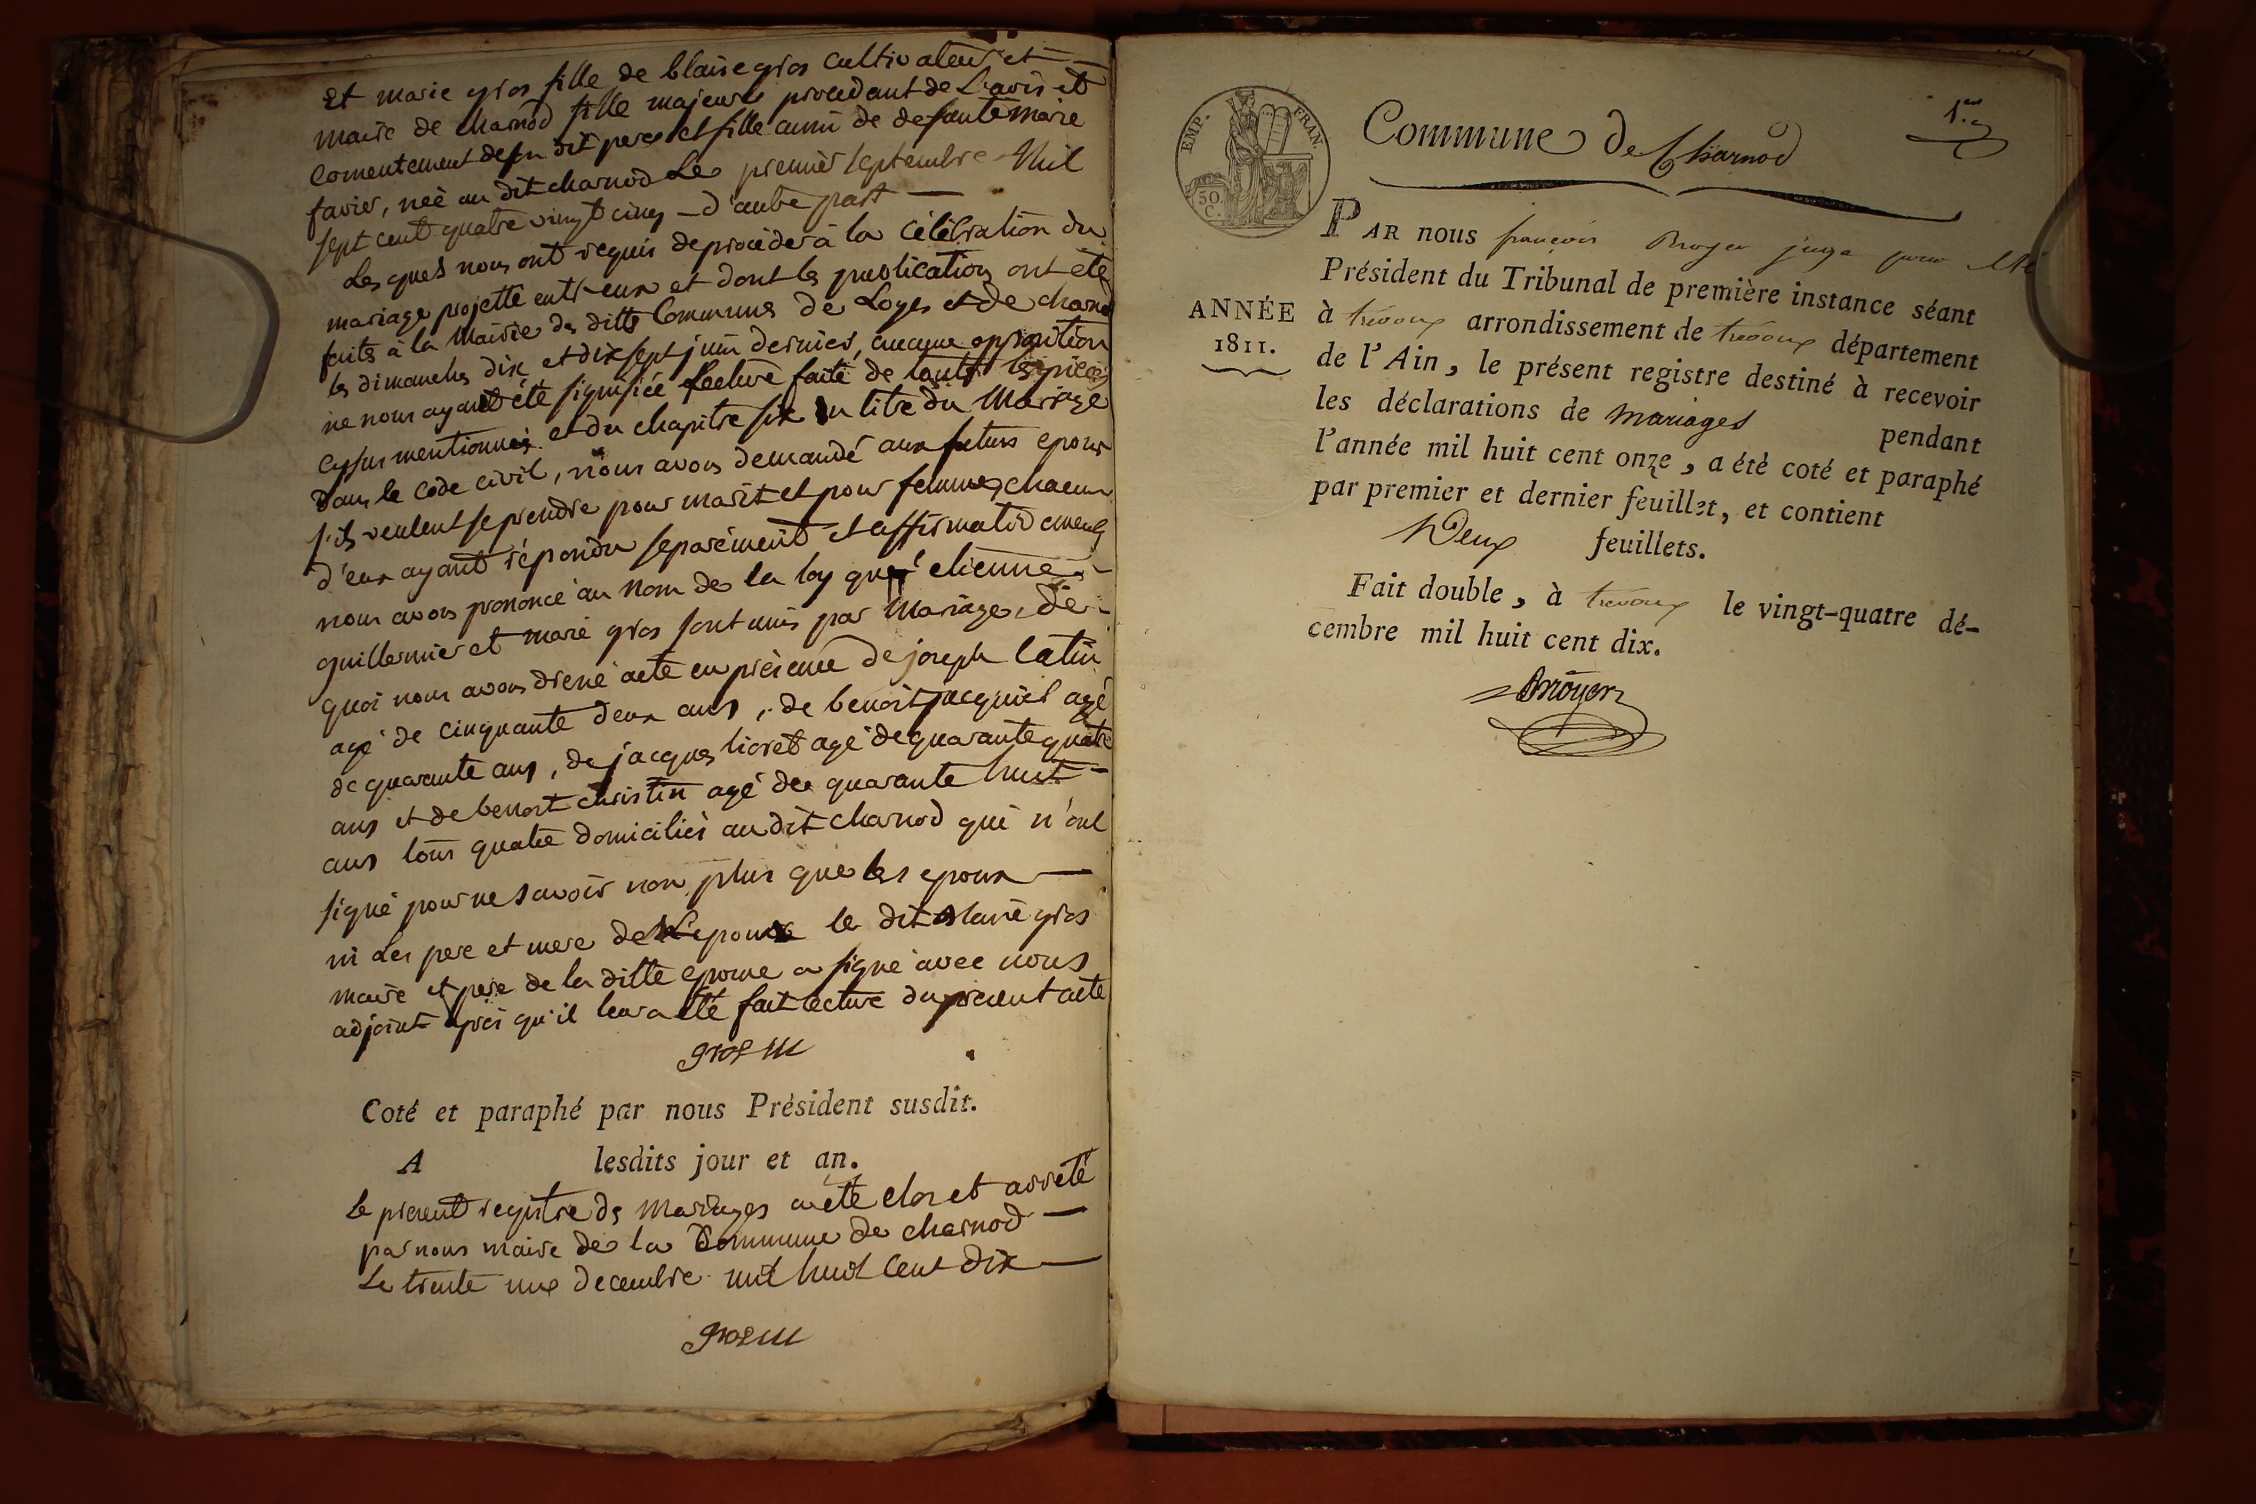 Et marie gros fille de blaise gros cultivateur et
maire de charnod fille majeure procedant de L'avis et
consentement de son dit pere et fille aussi de defunte marie
favier, neè au dit charnod Le premier septembre Mil
sept cent quatre vingt cinq – d'autre part —
Lesquels nous ont requis de procèder à la célèbration du
mariage projetté entr'eux et dont les publications ont été
faites à la Mairie des dittes Communes de Loyes et de charnod
les dimanches dix et dix sept juin dernier, aucune opposition
ne nous ayant été signifiée lecture faite de toutes les pièces
cy sus mentionneés et du chapitre six du titre du Mariage
dans le code civil, nous avons demandé aux futurs epoux
s'ils veulent se prendre pour marit et pour femme, chacun
d'eux ayant répondu separément et affirmativement
nous avons prononcé au nom de la loy que etienne
guillermier et marie gros sont unis par Mariage, de
quoi nous avons dressé acte en présence de joseph Catin
agé de cinquante deux ans, de benoit jacquiet agé
de quarante ans, de jacques livret agé de quarante quatre
ans et de benoit christin agé de quarante huit
ans tous quatre domiciliés au dit charnod qui n'ont
signé pour ne savoir non plus que les epoux —
ni Les pere et mere de L'epoux le dit blaise gros
maire et pere de la ditte epouse a signé avec nous
adjoint après qu'il leur a été fait lecture du présent acte
gros m
Coté et paraphé par nous Président susdit.
A lesdits jour et an.
Le présent registre de Mariages a été clos et arrété
par nous maire de la Commune de charnod —
Le trente un decembre mil huit cent dix —
gros m
1.er
EMP. FRAN.
50. C.
Commune de Charnod
PAR nous françois Broyer juge pour
Président du Tribunal de première instance séant
ANNÉE 1811.
à trévoux arrondissement de trévoux département
de l'Ain, le présent registre destiné à recevoir
les déclarations de mariages pendant
l'année mil huit cent onze, a été coté et paraphé
par premier et dernier feuillet, et contient
Deux feuillets.
Fait double, à trévoux le vingt-quatre dé-
cembre mil huit cent dix.
Broyer